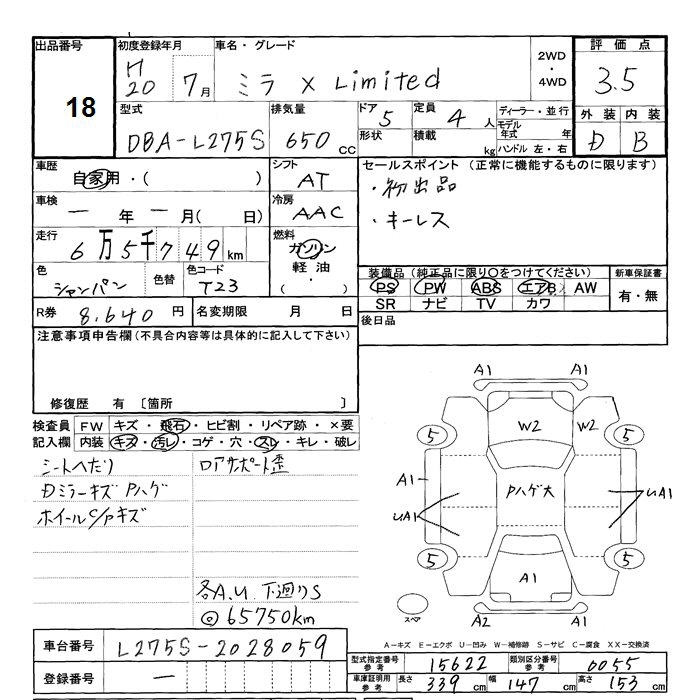 出品番号 初度登録年月 車名・グレード 2WD・4WD 評価点
18 H20 7月 ミラ X Limited 3.5
型式 排気量 ドア 5 定員 4人 ディーラー・並行 外装 内装
DBA-L275S 650cc 形状 積載 kg モデル年式 年 ハンドル 左・右 D B
車歴 シフト セールスポイント (正常に機能するものに限ります)
自家用・( ) AT ・初出品
車検 冷房 ・キーレス
ー年ー月( 日) AAC
走行 燃料
6万5千749km ガソリン
色 色替 色コード 軽油 装備品 (純正品に限り○をつけてください) 新車保証書
シャンパン T23 ・( ) PS PW ABS エアB AW 有・無
R券 名変期限 月 日 SR ナビ TV カワ
8,640円 後日品
注意事項申告欄(不具合内容等は具体的に記入して下さい)
修復歴 有 〔箇所 〕
検査員 FW キズ・飛石・ヒビ割・リペア跡・×要
記入欄 内装 キズ・汚レ・コゲ・穴・スレ・キレ・破レ
シートへたり ロアサポート歪
Dミラーキズ Pハゲ
ホイールC/Pキズ
各A.U. 下廻りS
@65750km
A1 A1
5 W2 W2 5
A1 Pハゲ大
UA1 UA1
5 A1 5
スペア A2 U1 A1
A-キズ E-エクボ U-凹み W-補修跡 S-サビ C-腐食 XX-交換済
車台番号 L275S-2028059
型式指定番号 参考 15622 類別区分番号 参考 0055
登録番号 ー
車庫証明用 参考 長さ 339cm 幅 147cm 高さ 153cm